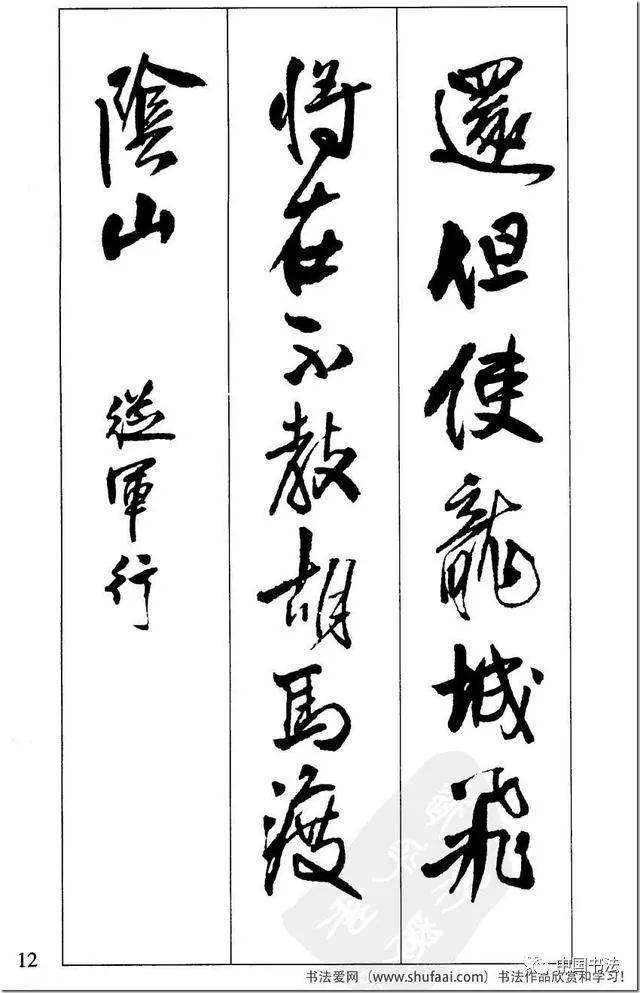 還但使龍城飛
将在不教胡馬渡
陰山 從軍行
12
中国书法
书法爱网（www.shufaai.com）书法作品欣赏和学习！